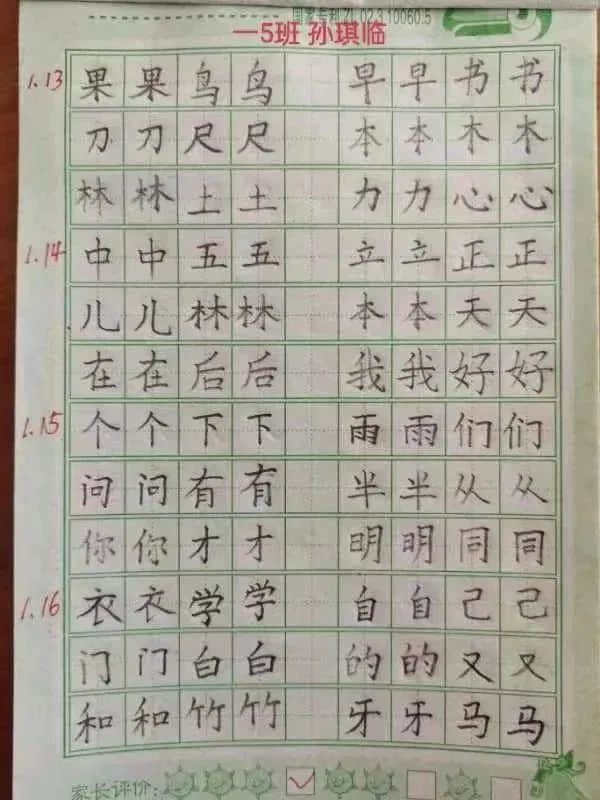 国家专利 ZL 02 3 10060.5
一5班 孙琪临
1.13 果果鸟鸟 早早书书
刀刀尺尺 本本木木
林林土土 力力心心
1.14 中中五五 立立正正
儿儿林林 本本天天
在在后后 我我好好
1.15 个个下下 雨雨们们
问问有有 半半从从
你你才才 明明同同
1.16 衣衣学学 自自己己
门门白白 的的又又
和和竹竹 牙牙马马
家长评价: